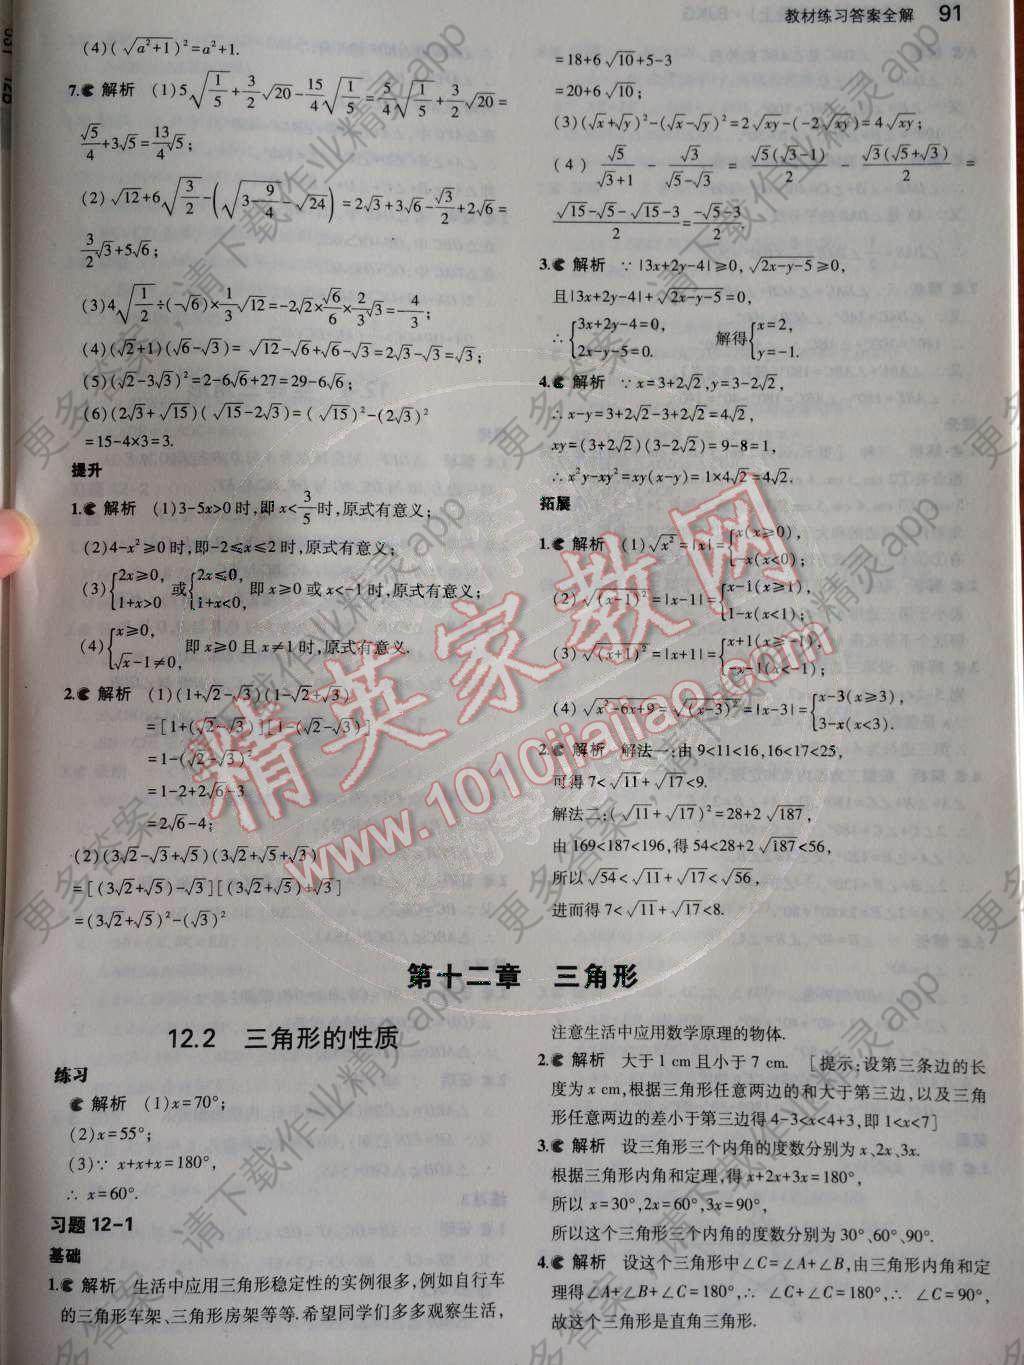 教材练习答案全解 91
(4)(√(a²+1))²=a²+1.
7. 解析 (1)5√(1/5)+3/2√20-15/4√(1/5)=5/4√(1/5)+3/2√20=
√5/4+3√5=13/4√5;
(2)√12+6√(3/2)-(√(3-9/4)-√24)=2√3+3√6-√3/2+2√6=
3/2√3+5√6;
(3)4√(1/2)÷(-√6)×1/3√12=-2√2×√6/6×2/3√3=-4/3;
(4)(√2+1)(√6-√3)=√12-√6+√6-√3=2√3-√3=√3;
(5)(√2-3√3)²=2-6√6+27=29-6√6;
(6)(2√3+√15)(√15-2√3)=(√15)²-(2√3)²
=15-4×3=3.
提升
1. 解析 (1)3-5x>0时,即x<3/5时,原式有意义;
(2)4-x²≥0时,即-2≤x≤2时,原式有意义;
(3){2x≥0, 1+x>0 或{2x≤0, 1+x<0, 即x≥0或x<-1时,原式有意义;
(4){x≥0, √x-1≠0, 即x≥0且x≠1时,原式有意义.
2. 解析 (1)(1+√2-√3)(1-√2+√3)
=[1+(√2-√3)][1-(√2-√3)]
=1-(√2-√3)²
=1-2+2√6-3
=2√6-4;
(2)(3√2-√3+√5)(3√2+√5+√3)
=[(3√2+√5)-√3][(3√2+√5)+√3]
=(3√2+√5)²-(√3)²
=18+6√10+5-3
=20+6√10;
(3)(√x+√y)²-(√x-√y)²=2√xy-(-2√xy)=4√xy;
(4)√5/(√3+1)-√3/(√5-√3)=√5(√3-1)/2-√3(√5+√3)/2=
(√15-√5-√15-3)/2=(-√5-3)/2
3. 解析 ∵|3x+2y-4|≥0,√(2x-y-5)≥0,
且|3x+2y-4|+√(2x-y-5)=0,
∴{3x+2y-4=0, 2x-y-5=0. 解得{x=2, y=-1.
4. 解析 ∵x=3+2√2,y=3-2√2,
∴x-y=3+2√2-3+2√2=4√2,
xy=(3+2√2)(3-2√2)=9-8=1,
∴x²y-xy²=xy(x-y)=1×4√2=4√2.
拓展
1. 解析 (1)√x²=|x|={x(x≥0), -x(x<0);
(2)√(x-1)²=|x-1|={x-1(x≥1), 1-x(x<1);
(3)√(x+1)²=|x+1|={x+1(x≥-1), -x-1(x<-1);
(4)√(x²-6x+9)=√(x-3)²=|x-3|={x-3(x≥3), 3-x(x<3).
2. 解析 解法一:由9<11<16,16<17<25,
可得7<√11+√17<9.
解法二:(√11+√17)²=28+2√187,
由169<187<196,得54<28+2√187<56,
所以√54<√11+√17<√56,
进而得7<√11+√17<8.
第十二章 三角形
12.2 三角形的性质
练习
解析 (1)x=70°;
(2)x=55°;
(3)∵x+x+x=180°,
∴x=60°.
习题12-1
基础
1. 解析 生活中应用三角形稳定性的实例很多,例如自行车
的三角形车架、三角形房架等等.希望同学们多多观察生活,
注意生活中应用数学原理的物体.
2. 解析 大于1 cm且小于7 cm. [提示:设第三条边的长
度为x cm,根据三角形任意两边的和大于第三边,以及三角
形任意两边的差小于第三边得4-3<x<4+3,即1<x<7]
3. 解析 设三角形三个内角的度数分别为x、2x、3x.
根据三角形内角和定理,得x+2x+3x=180°,
所以x=30°,2x=60°,3x=90°,
所以这个三角形三个内角的度数分别为30°、60°、90°.
4. 解析 设这个三角形中∠C=∠A+∠B,由三角形内角和定
理得∠A+∠B+∠C=180°,∴∠C+∠C=180°,∴∠C=90°,
故这个三角形是直角三角形.
精英家教网
www.1010jiajiao.com
更多答案,请下载作业精灵app